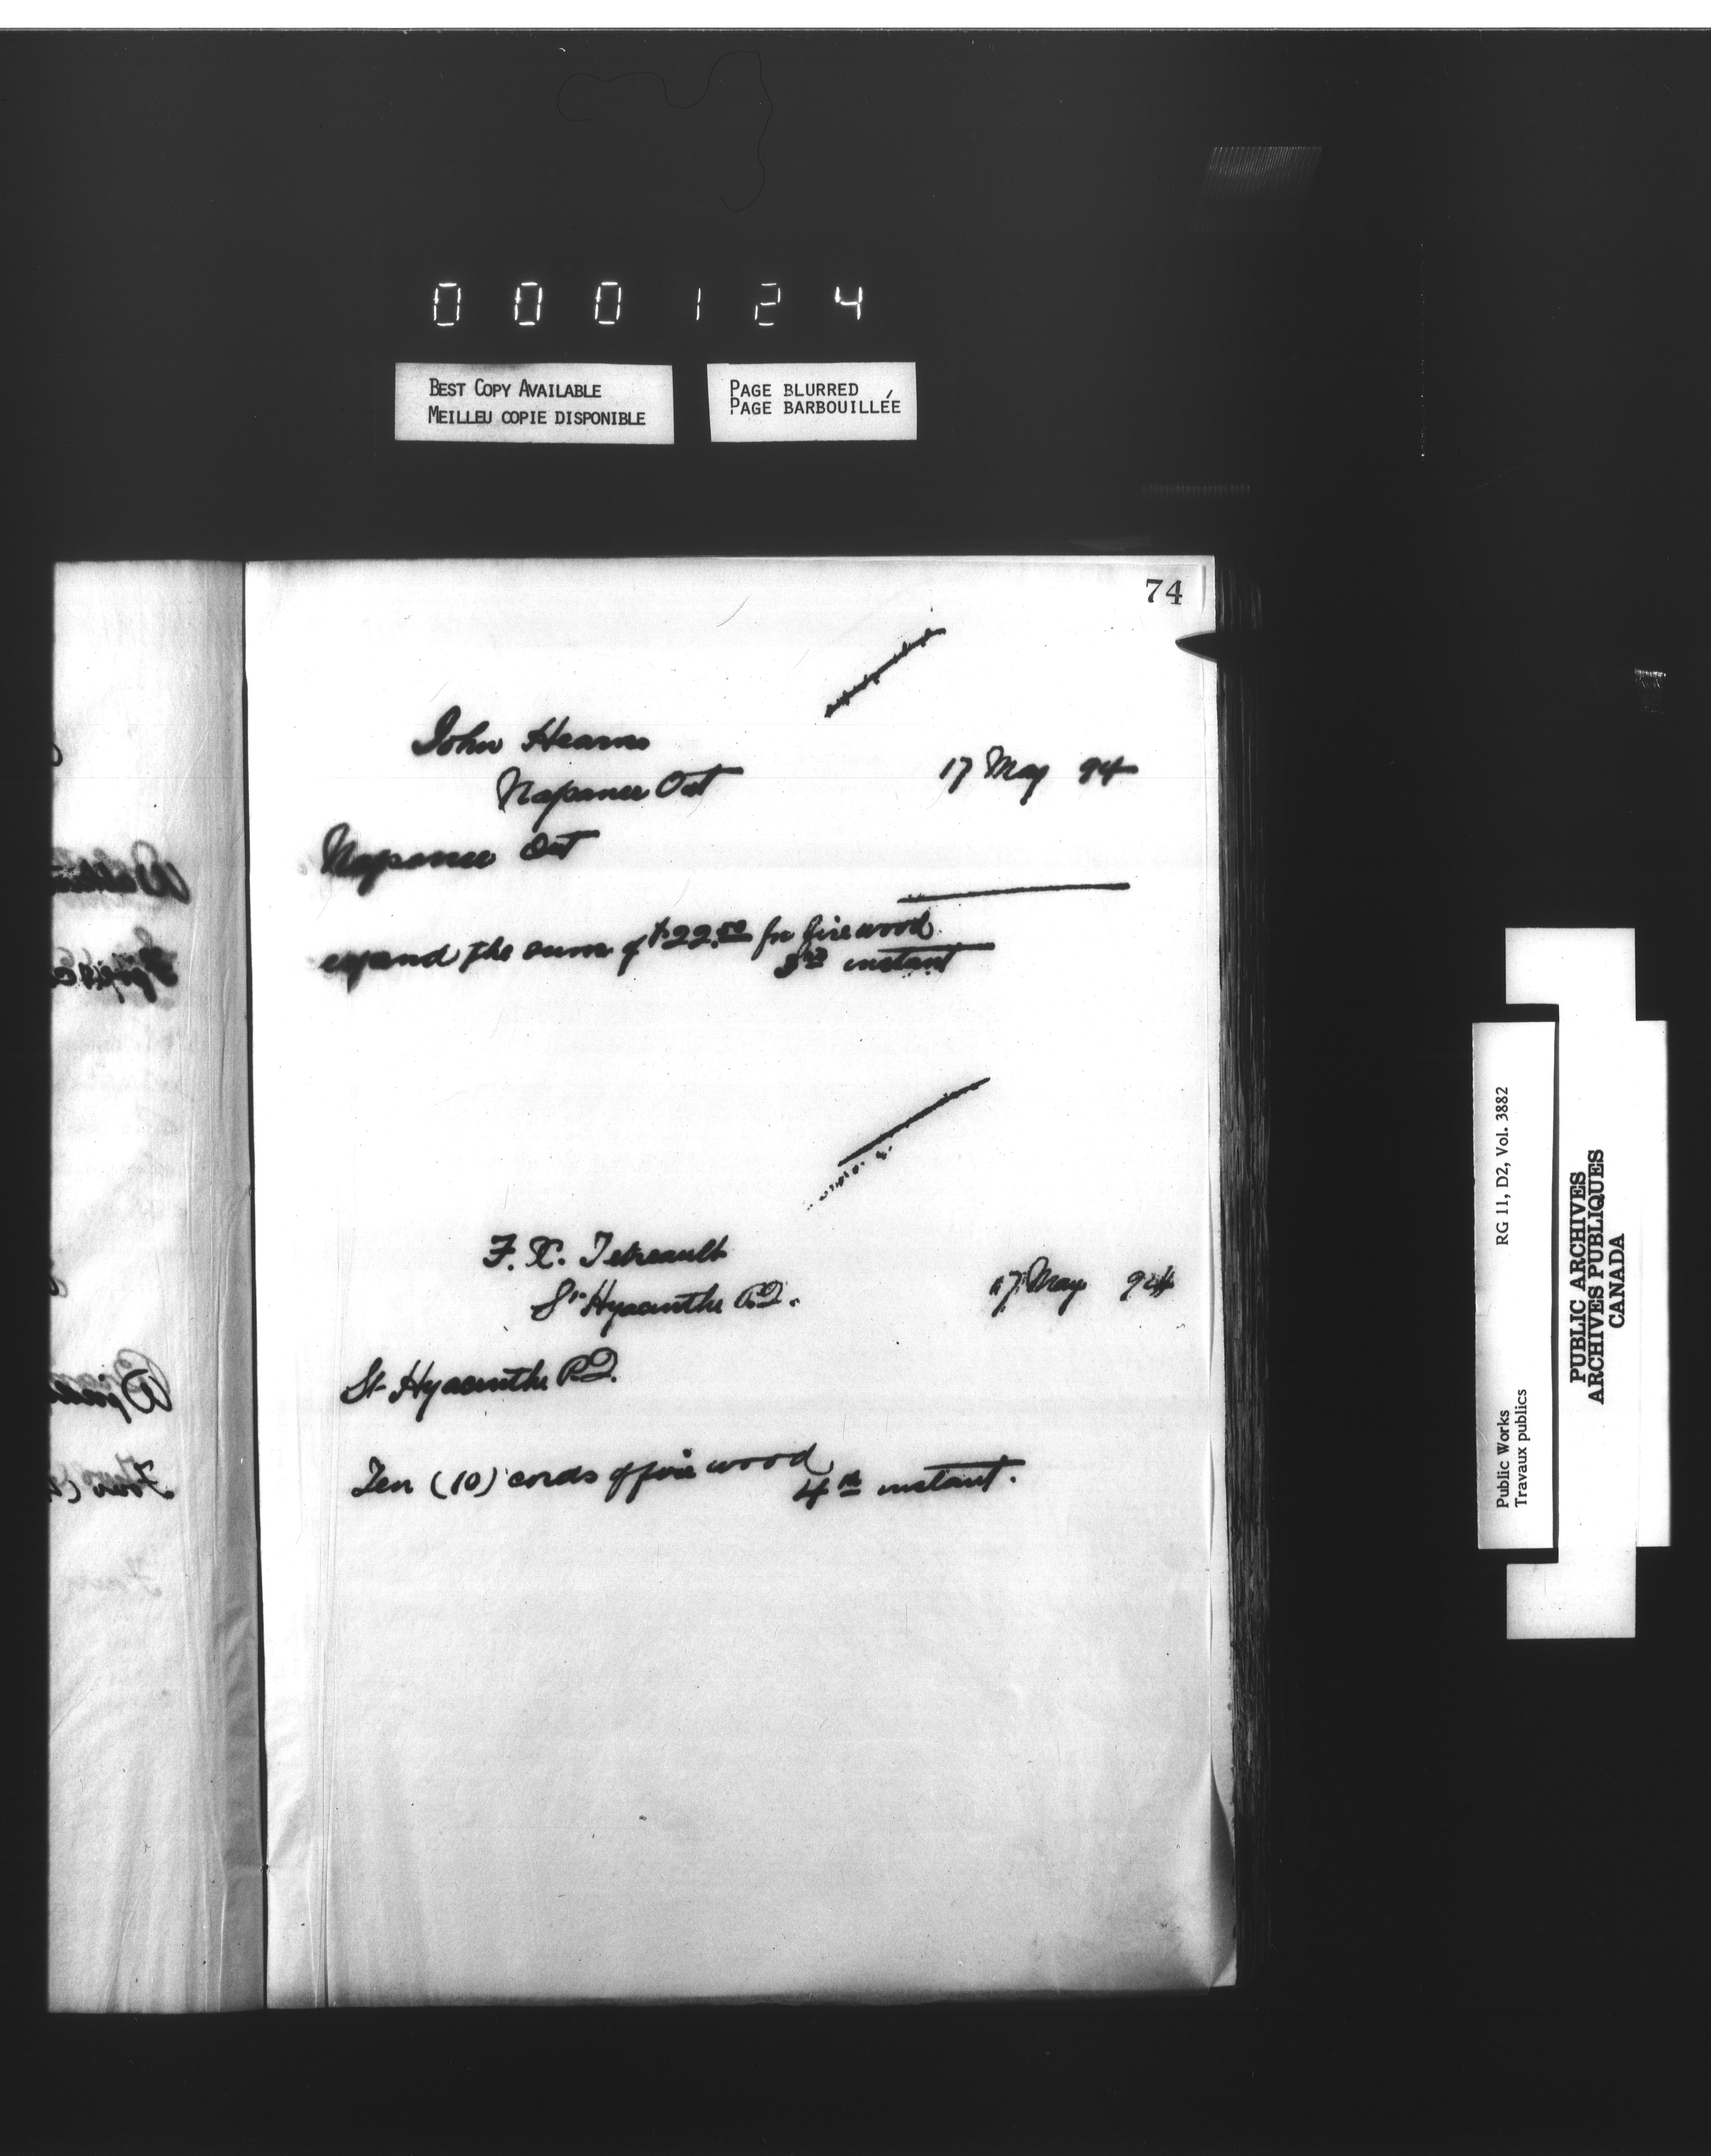 000124
BEST COPY AVAILABLE
MEILLEU COPIE DISPONIBLE
PAGE BLURRED
PAGE BARBOUILLÉE
74
John Hearns
Napanee Ont
17 May 94
Napanee Ont
expend the sum of $22.50 for fire wood
3rd instant
F. X. Tetreault
St Hyacinthe P.Q.
17 May 94
St Hyacinthe P.Q.
Ten (10) cords of fire wood
4th instant.
RG 11, D2, Vol. 3882
Public Works
Travaux publics
PUBLIC ARCHIVES
ARCHIVES PUBLIQUES
CANADA